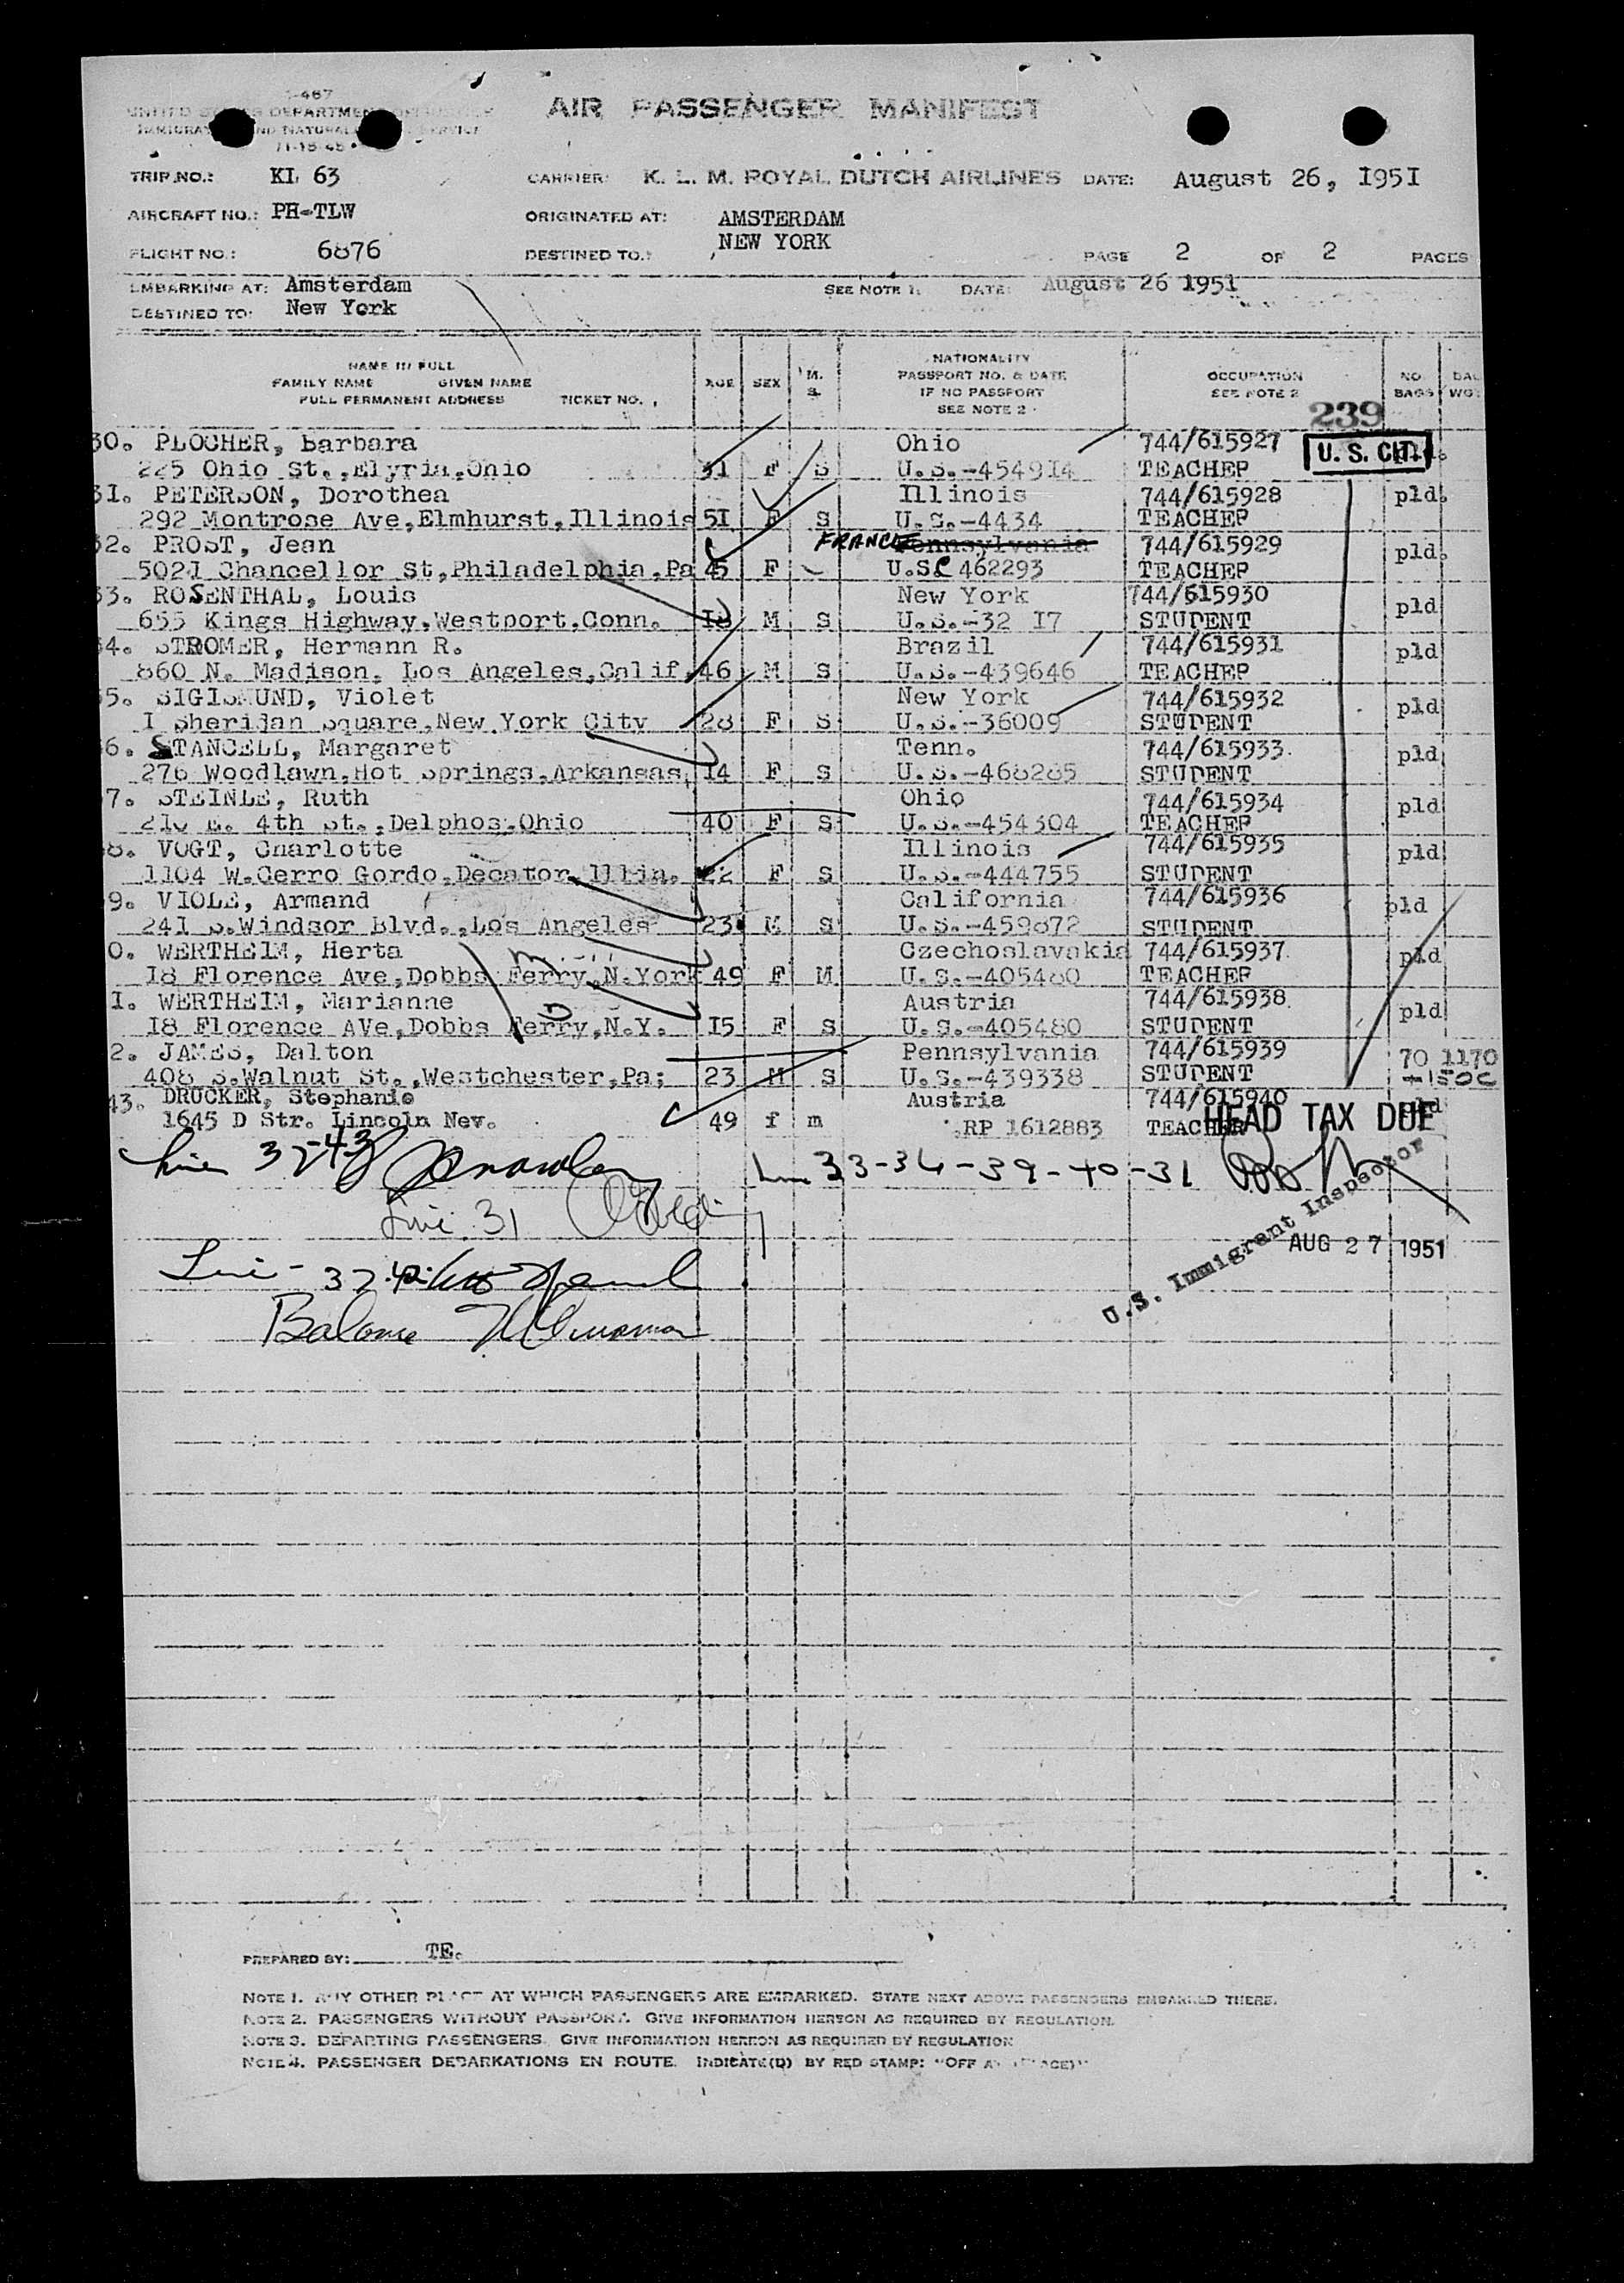 I-487
UNITED STATES DEPARTMENT OF JUSTICE
IMMIGRATION AND NATURALIZATION SERVICE
AIR PASSENGER MANIFEST
TRIP NO.: KL 63 CARRIER: K. L. M. ROYAL DUTCH AIRLINES DATE: August 26, 1951
AIRCRAFT NO.: PH-TLW ORIGINATED AT: AMSTERDAM
FLIGHT NO.: 6876 DESTINED TO.: NEW YORK PAGE 2 OF 2 PAGES
EMBARKING AT: Amsterdam SEE NOTE 1. DATE: August 26 1951
DESTINED TO: New York
NAME IN FULL
FAMILY NAME GIVEN NAME
FULL PERMANENT ADDRESS TICKET NO. AGE SEX M. S. NATIONALITY PASSPORT NO. & DATE IF NO PASSPORT SEE NOTE 2 OCCUPATION SEE NOTE 2 NO. BAGS
239
30. PLOCHER, Barbara Ohio 744/615927 U. S. CIT.
225 Ohio St.,Elyria,Ohio 31 F S U.S.-454914 TEACHER
31. PETERSON, Dorothea Illinois 744/615928 pld.
292 Montrose Ave,Elmhurst,Illinois 51 F S U.S.-4434 TEACHER
32. PROST, Jean FRANCE Pennsylvania 744/615929 pld.
5021 Chancellor St,Philadelphia,Pa 45 F U.S. 462293 TEACHER
33. ROSENTHAL, Louis New York 744/615930 pld
655 Kings Highway,Westport,Conn. 18 M S U.S.-32 17 STUDENT
34. STROMER, Hermann R. Brazil 744/615931 pld
860 N. Madison, Los Angeles,Calif. 46 M S U.S.-439646 TEACHER
35. SIGISMUND, Violet New York 744/615932 pld
I Sheridan Square,New York City 28 F S U.S.-36009 STUDENT
36. STANCELL, Margaret Tenn. 744/615933. pld
276 Woodlawn,Hot Springs,Arkansas, 14 F S U.S.-468285 STUDENT
7. STEINLE, Ruth Ohio 744/615934 pld
210 E. 4th St.,Delphos,Ohio 40 F S U.S.-454304 TEACHER
8. VOGT, Charlotte Illinois 744/615935 pld
1104 W.Cerro Gordo,Decator,Illin. 22 F S U.S.-444755 STUDENT
9. VIOLE, Armand California 744/615936 pld
241 S.Windsor Blvd.,Los Angeles 23 M S U.S.-459872 STUDENT
0. WERTHEIM, Herta Czechoslavakia 744/615937 pld
18 Florence Ave,Dobbs Ferry,N.York 49 F M U.S.-405480 TEACHER
1. WERTHEIM, Marianne Austria 744/615938. pld
18 Florence AVe,Dobbs Ferry,N.Y. 15 F S U.S.-405480 STUDENT
2. JAMES, Dalton Pennsylvania 744/615939 70 1170
408 S.Walnut St.,Westchester,Pa; 23 M S U.S.-439338 STUDENT
43. DRUCKER, Stephanie Austria 744/615940 pld
1645 D Str. Lincoln Nev. 49 f m RP 1612883 TEACHER
HEAD TAX DUE
Line 32-43
Line 33-34-39-40-31
Line 31
U.S. Immigrant Inspector
AUG 27 1951
Line -
Balance
PREPARED BY: TE.
NOTE 1. ANY OTHER PLACE AT WHICH PASSENGERS ARE EMBARKED. STATE NEXT ABOVE PASSENGERS EMBARKED THERE.
NOTE 2. PASSENGERS WITHOUT PASSPORT. GIVE INFORMATION HEREON AS REQUIRED BY REGULATION.
NOTE 3. DEPARTING PASSENGERS. GIVE INFORMATION HEREON AS REQUIRED BY REGULATION
NOTE 4. PASSENGER DEBARKATIONS EN ROUTE. INDICATE(D) BY RED STAMP: "OFF AT (PLACE)"